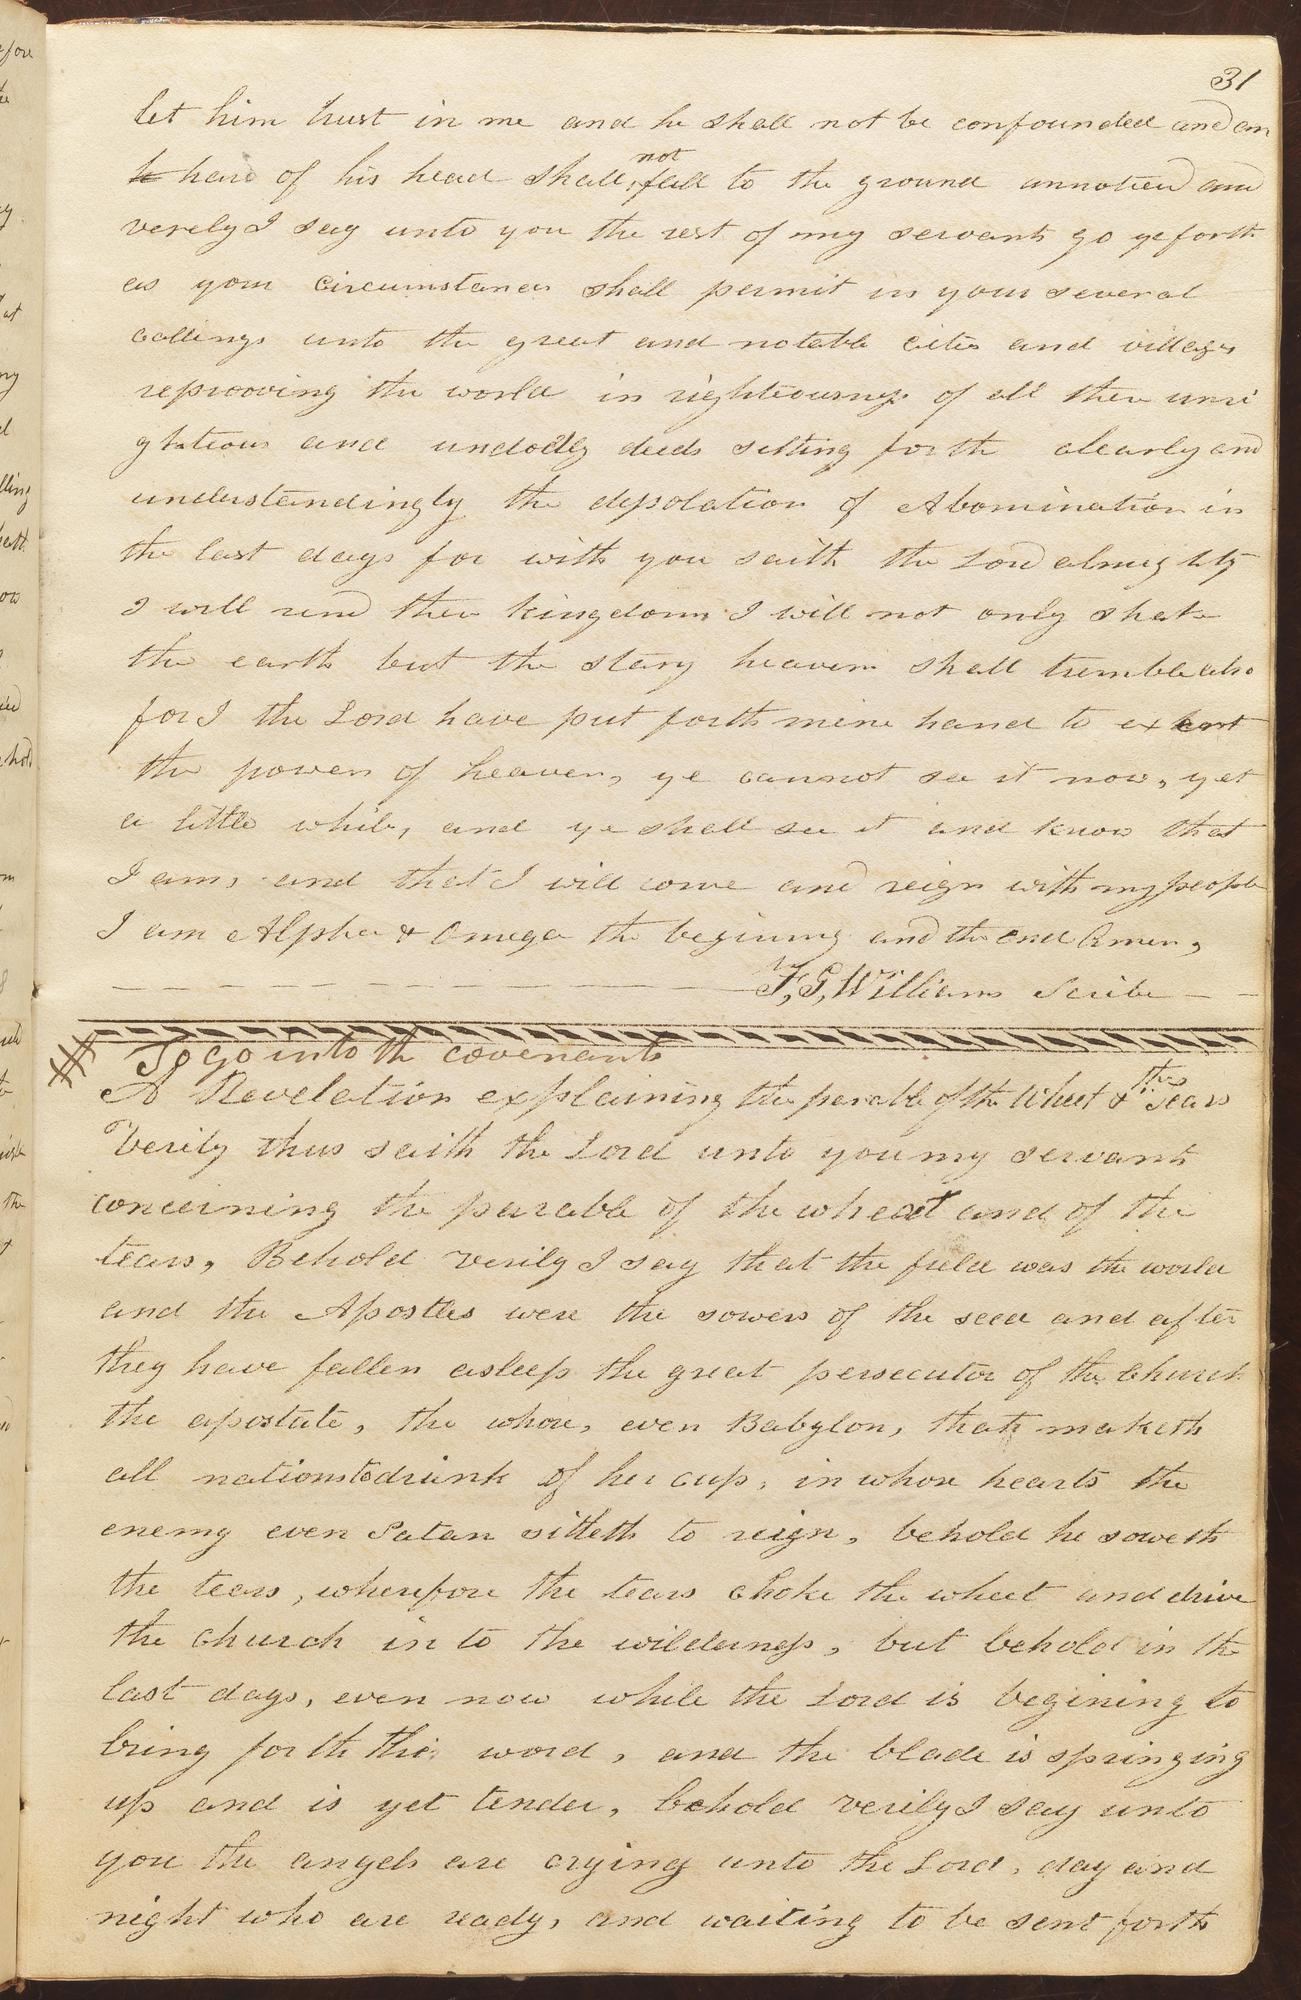 31
let him trust in me and he shall not be confounded and an
h hare of his head shall not fall to the ground unnoticed and
verely I say unto you the rest of my servants go ye forth
as your circumstances shall permit in your several
callings unto the great and notable cities and villages
reprooving the world in righteousness of all their unri
ghteous and undodly deeds setting forth clearly and
understandingly the desolation of Abomination in
the last days for with you saith the Lord almighty
I will rend their kingdoms I will not only shake
the earth but the stary heavens shall tremble also
for I the Lord have put forth mine hand to exhert
the powers of heaven, ye cannot see it now, yet
a little while, and ye shall see it and know that
I am, and that I will come and reign with my people
I am Alpha & Omega the begining and the end Amen,
F, G, Williams Scribe
To go into the covenants
A Revelation explaining the parable of the Wheat & the Tears
Verily thus saith the Lord unto you my servants
concerning the parable of the wheat and of the
tears, Behold verily I say that the field was the world
and the Apostles were the sowers of the seed and after
they have fallen asleep the great persecutor of the Church
the apostate, the whore, even Babylon, that maketh
all nations to drink of her cup, in whose hearts the
enemy even Satan sitteth to reign, behold he soweth
the tears, wherefore the tears choke the wheat and drive
the church into the wilderness, but behold in the
last days, even now while the Lord is begining to
bring forth the word, and the blade is springing
up and is yet tender, behold verily I say unto
you the angels are crying unto the Lord, day and
night who are ready, and waiting to be sent forth